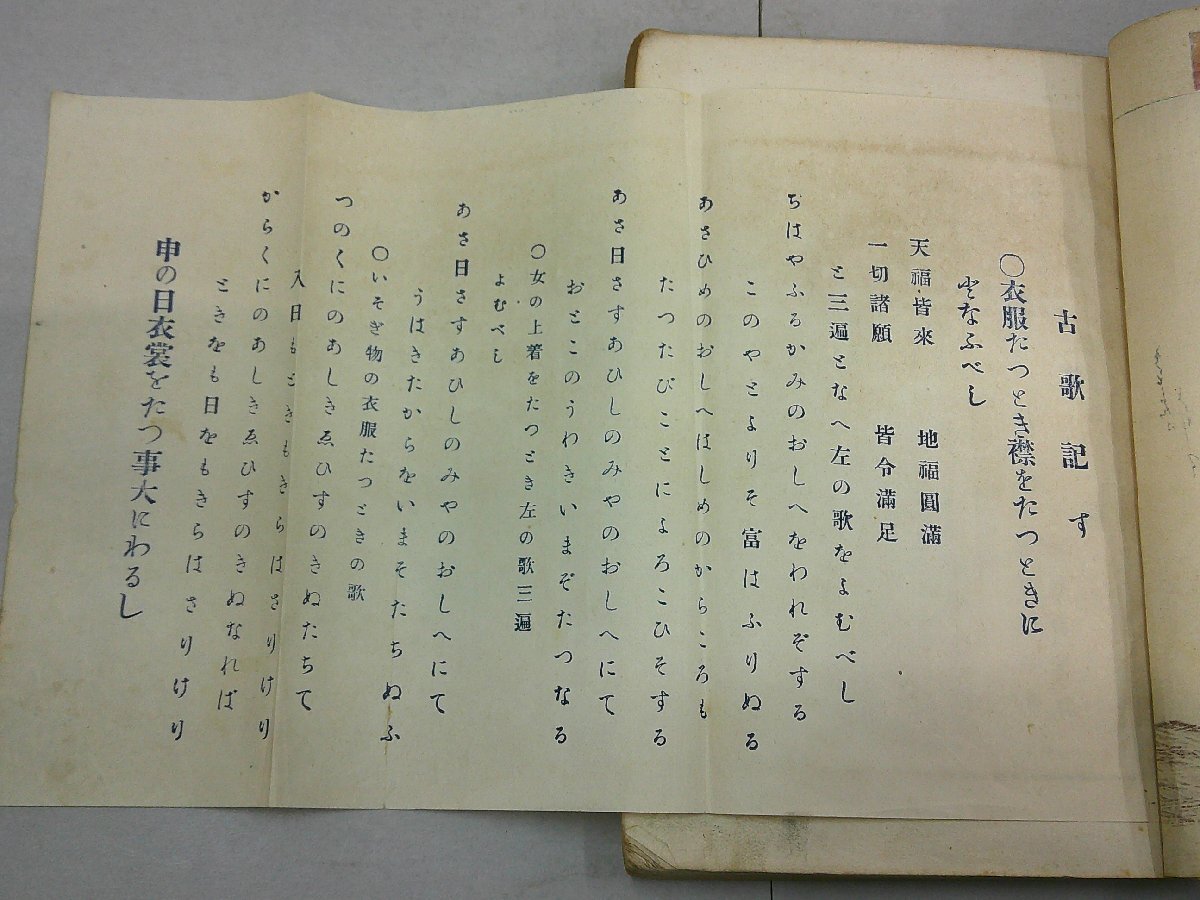 古歌記す
○衣服たつとき襟をたつときに
となふべし
天福皆來　地福圓滿
一切諸願　皆令滿足
と三遍となへ左の歌をよむべし
ちはやふるかみのおしへをわれぞする
このやとよりそ富はふりぬる
あさひめのおしへはしめのからころも
たつたびことによろこひそする
あさ日さすあひしのみやのおしへにて
おとこのうわきいまぞたつなる
○女の上着をたつとき左の歌三遍
よむべし
あさ日さすあひしのみやのおしへにて
うはきたからをいまそたちぬふ
○いそぎ物の衣服たつときの歌
つのくにのあしきゑひすのきぬたちて
入日もときもきらはさりけり
からくにのあしきゑひすのきぬなれば
ときをも日をもきらはさりけり
申の日衣裳をたつ事大にわるし